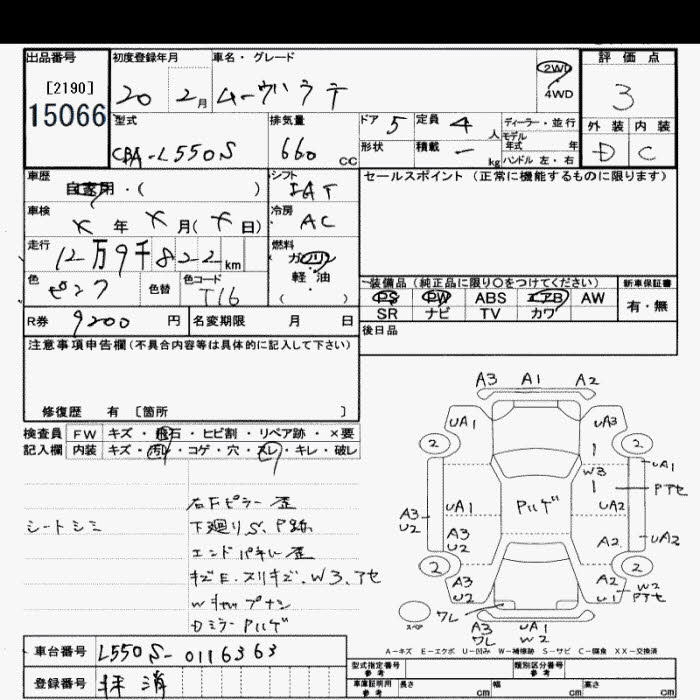 出品番号
[2190]
15066
初度登録年月
20 2月
車名・グレード
ムーヴラテ
2WD
4WD
評価点
3
外装 内装
D C
型式
CBA-L550S
排気量
660 CC
ドア 5
定員 4 人
形状
積載 - kg
ディーラー・並行
モデル年式 年
ハンドル 左・右
車歴
自家用・( )
シフト
FAT
車検
× 年 × 月(× 日)
冷房
AC
走行
12万9千822km
燃料
ガソリン
軽・油
( )
色
ピンク
色替
色コード
T16
セールスポイント(正常に機能するものに限ります)
装備品(純正品に限り○をつけてください)
PS PW ABS エアB AW
SR ナビ TV カワ
新車保証書
有・無
R券 9200 円
名変期限 月 日
後日品
注意事項申告欄(不具合内容等は具体的に記入して下さい)
修復歴 有 〔箇所 〕
検査員記入欄
FW キズ・飛石・ヒビ割・リペア跡・×要
内装 キズ・汚れ・コゲ・穴・スレ・キレ・破レ
シートシミ
右Fピラー歪
下廻りS、P跡
エンドパネル歪
キズE、スリキズ、W3、アセ
Wキャップナシ
Dミラーハゲ
A3 A1 A2
UA1 UA3
2 2
W3
UA1
Pアセ
Pハゲ
A3
U2
UA1
UA2
A3
U2
A2
UA2
2 2
A3
U2
A2
U1
W2
Pアセ
スペア
ワレ
A3
ワレ
UA1
W2
A-キズ E-エクボ U-凹み W-補修跡 S-サビ C-腐食 XX-交換済
車台番号 L550S-0116363
登録番号 抹消
型式指定番号
参考
類別区分番号
参考
車庫証明用
参考
長さ cm 幅 cm 高さ cm